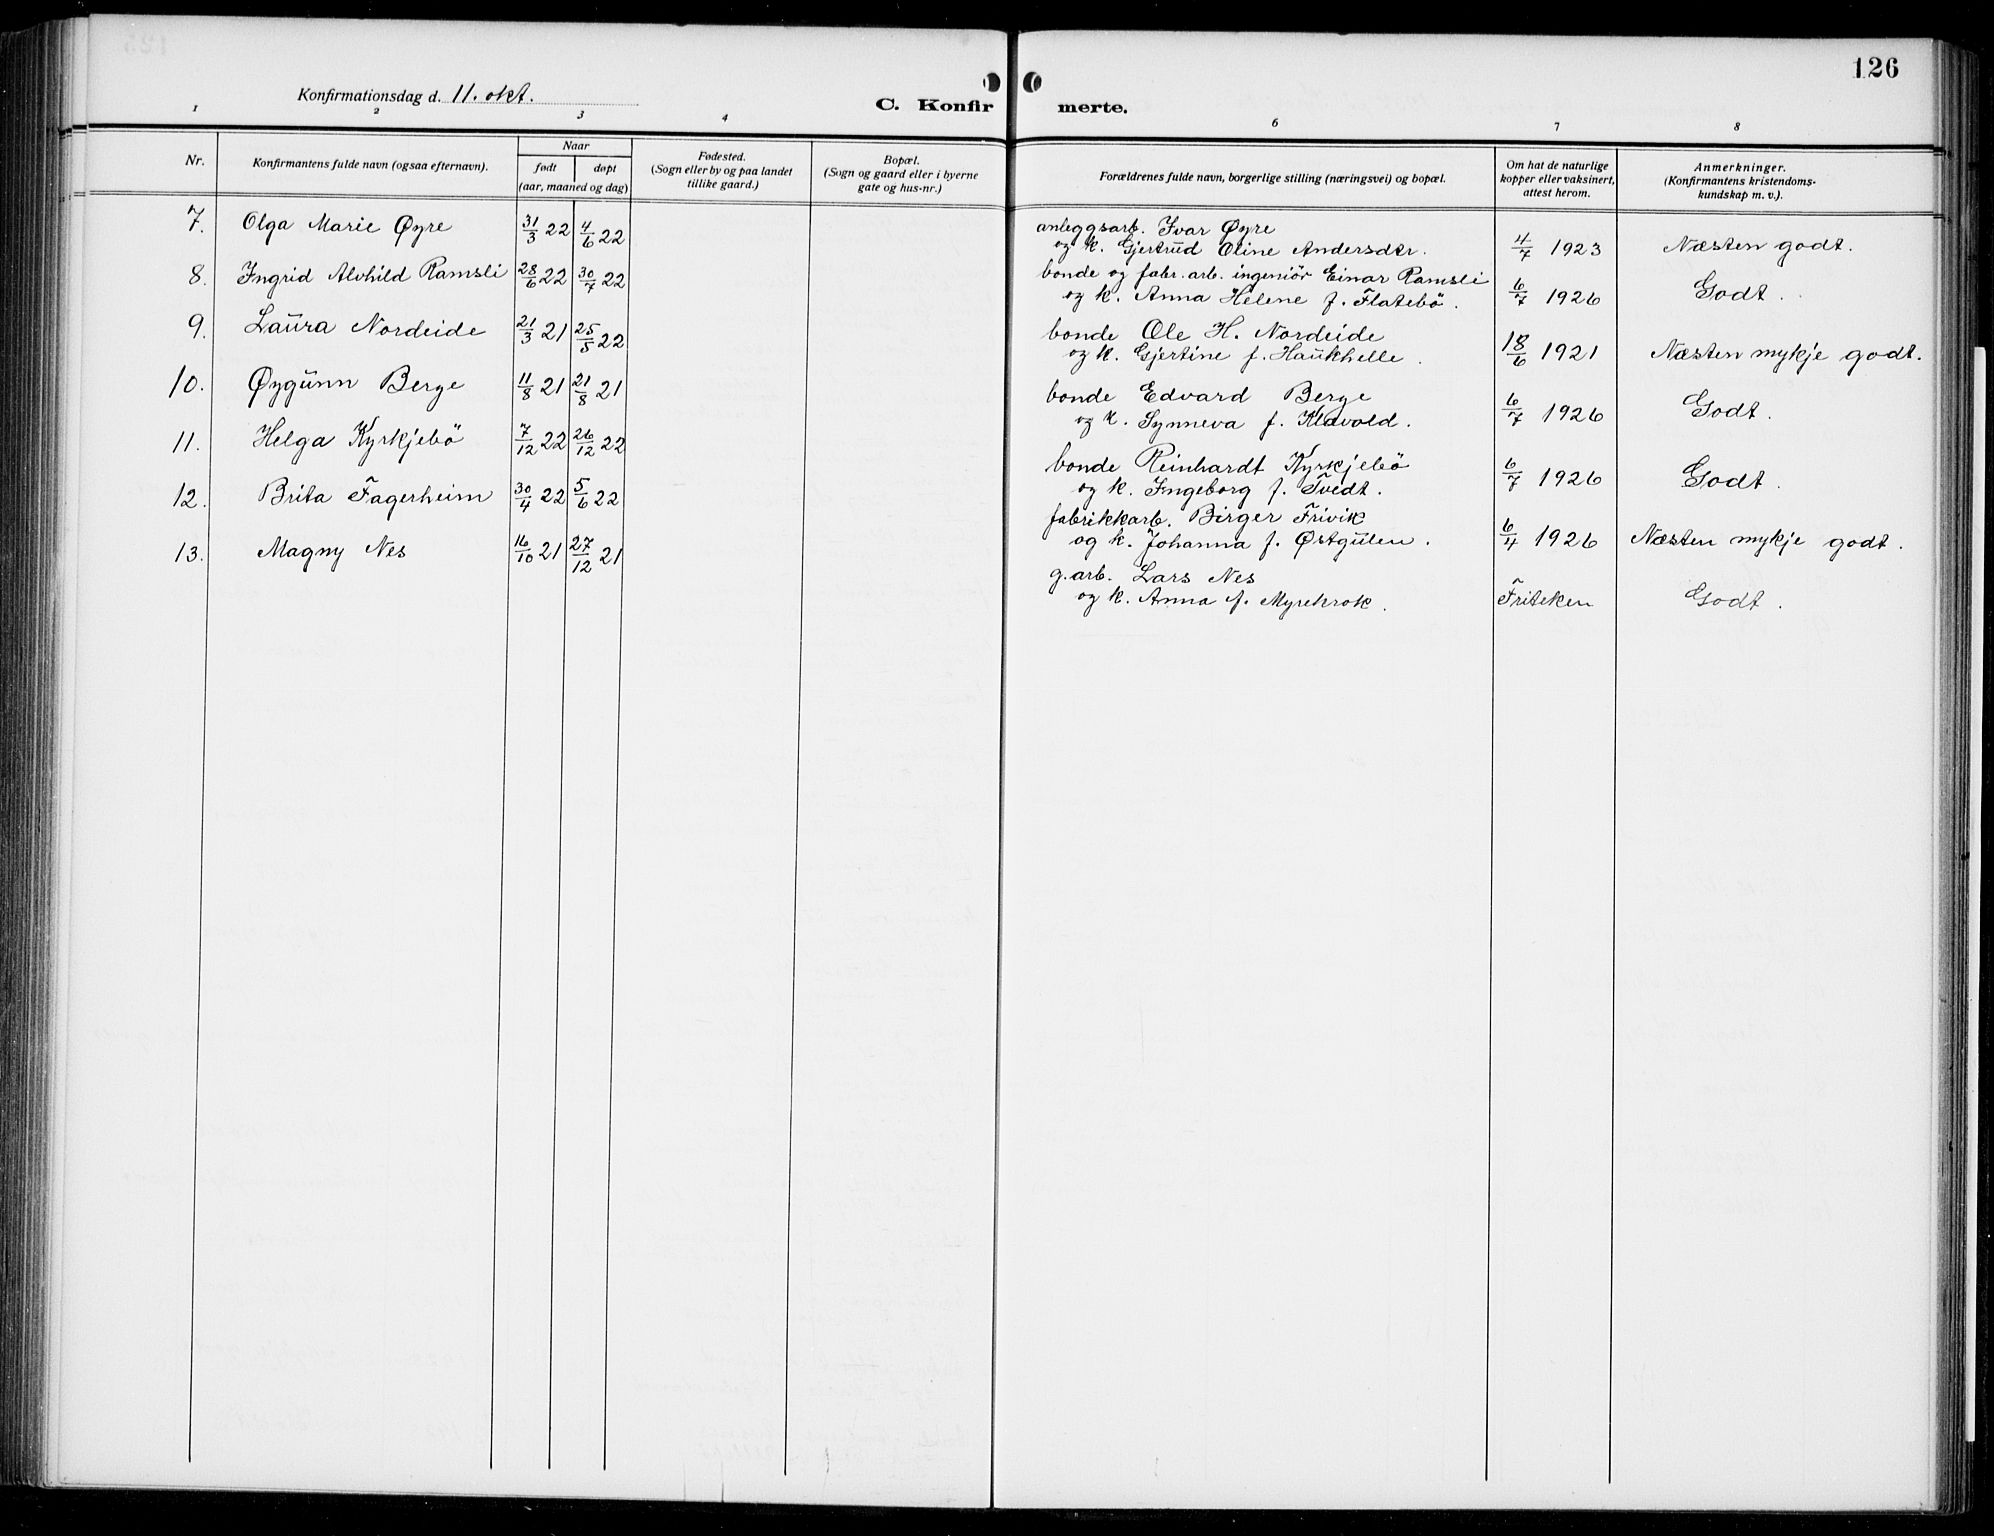 126
Konfirmationsdag d. 11. okt.
C. Konfir merte.
1 2 3 4 6 7 8
Nr.
Konfirmantens fulde navn (ogsaa efternavn).
Naar
født døpt
(aar, maaned og dag)
Fødested.
(Sogn eller by og paa landet
tillike gaard.)
Bopæl.
(Sogn og gaard eller i byerne
gate og hus-nr.)
Forældrenes fulde navn, borgerlige stilling (næringsvei) og bopæl.
Om hat de naturlige
kopper eller vaksinert,
attest herom.
Anmerkninger.
(Konfirmantens kristendoms-
kundskap m. v.).
7. Olga Marie Øyre 31/3 22 4/6 22 anleggsarb. Ivar Øyre
og k. Gjertrud Oline Andersdtr. 4/7 1923 Næsten godt.
8. Ingrid Alvhild Ramsli 28/6 22 30/7 22 bonde og fabr. arb. ingeniör Einar Ramsli
og k. Anna Helene f. Flatebö. 6/7 1926 Godt.
9. Laura Nordeide 21/3 21 25/5 22 bonde Ole H. Nordeide
og k. Gjertine f. Haukhelle. 18/6 1921 Næsten mykje godt.
10. Øygunn Berge 11/8 21 21/8 21 bonde Edvard Berge
og k. Synneva f. Klævold. 6/7 1926 Godt.
11. Helga Kyrkjebö 7/12 22 26/12 22 bonde Reinhardt Kyrkjebö
og k. Ingeborg f. Tvedt. 6/7 1926 Godt.
12. Brita Fagerheim 30/4 22 5/6 22 fabrikkarb. Birger Frivik
og k. Johanna f. Østgulen. 6/4 1926 Næsten mykje godt.
13. Magny Nes 16/10 21 27/12 21 g.arb. Lars Nes
og k. Anna f. Myrekrok. Friteken Godt.